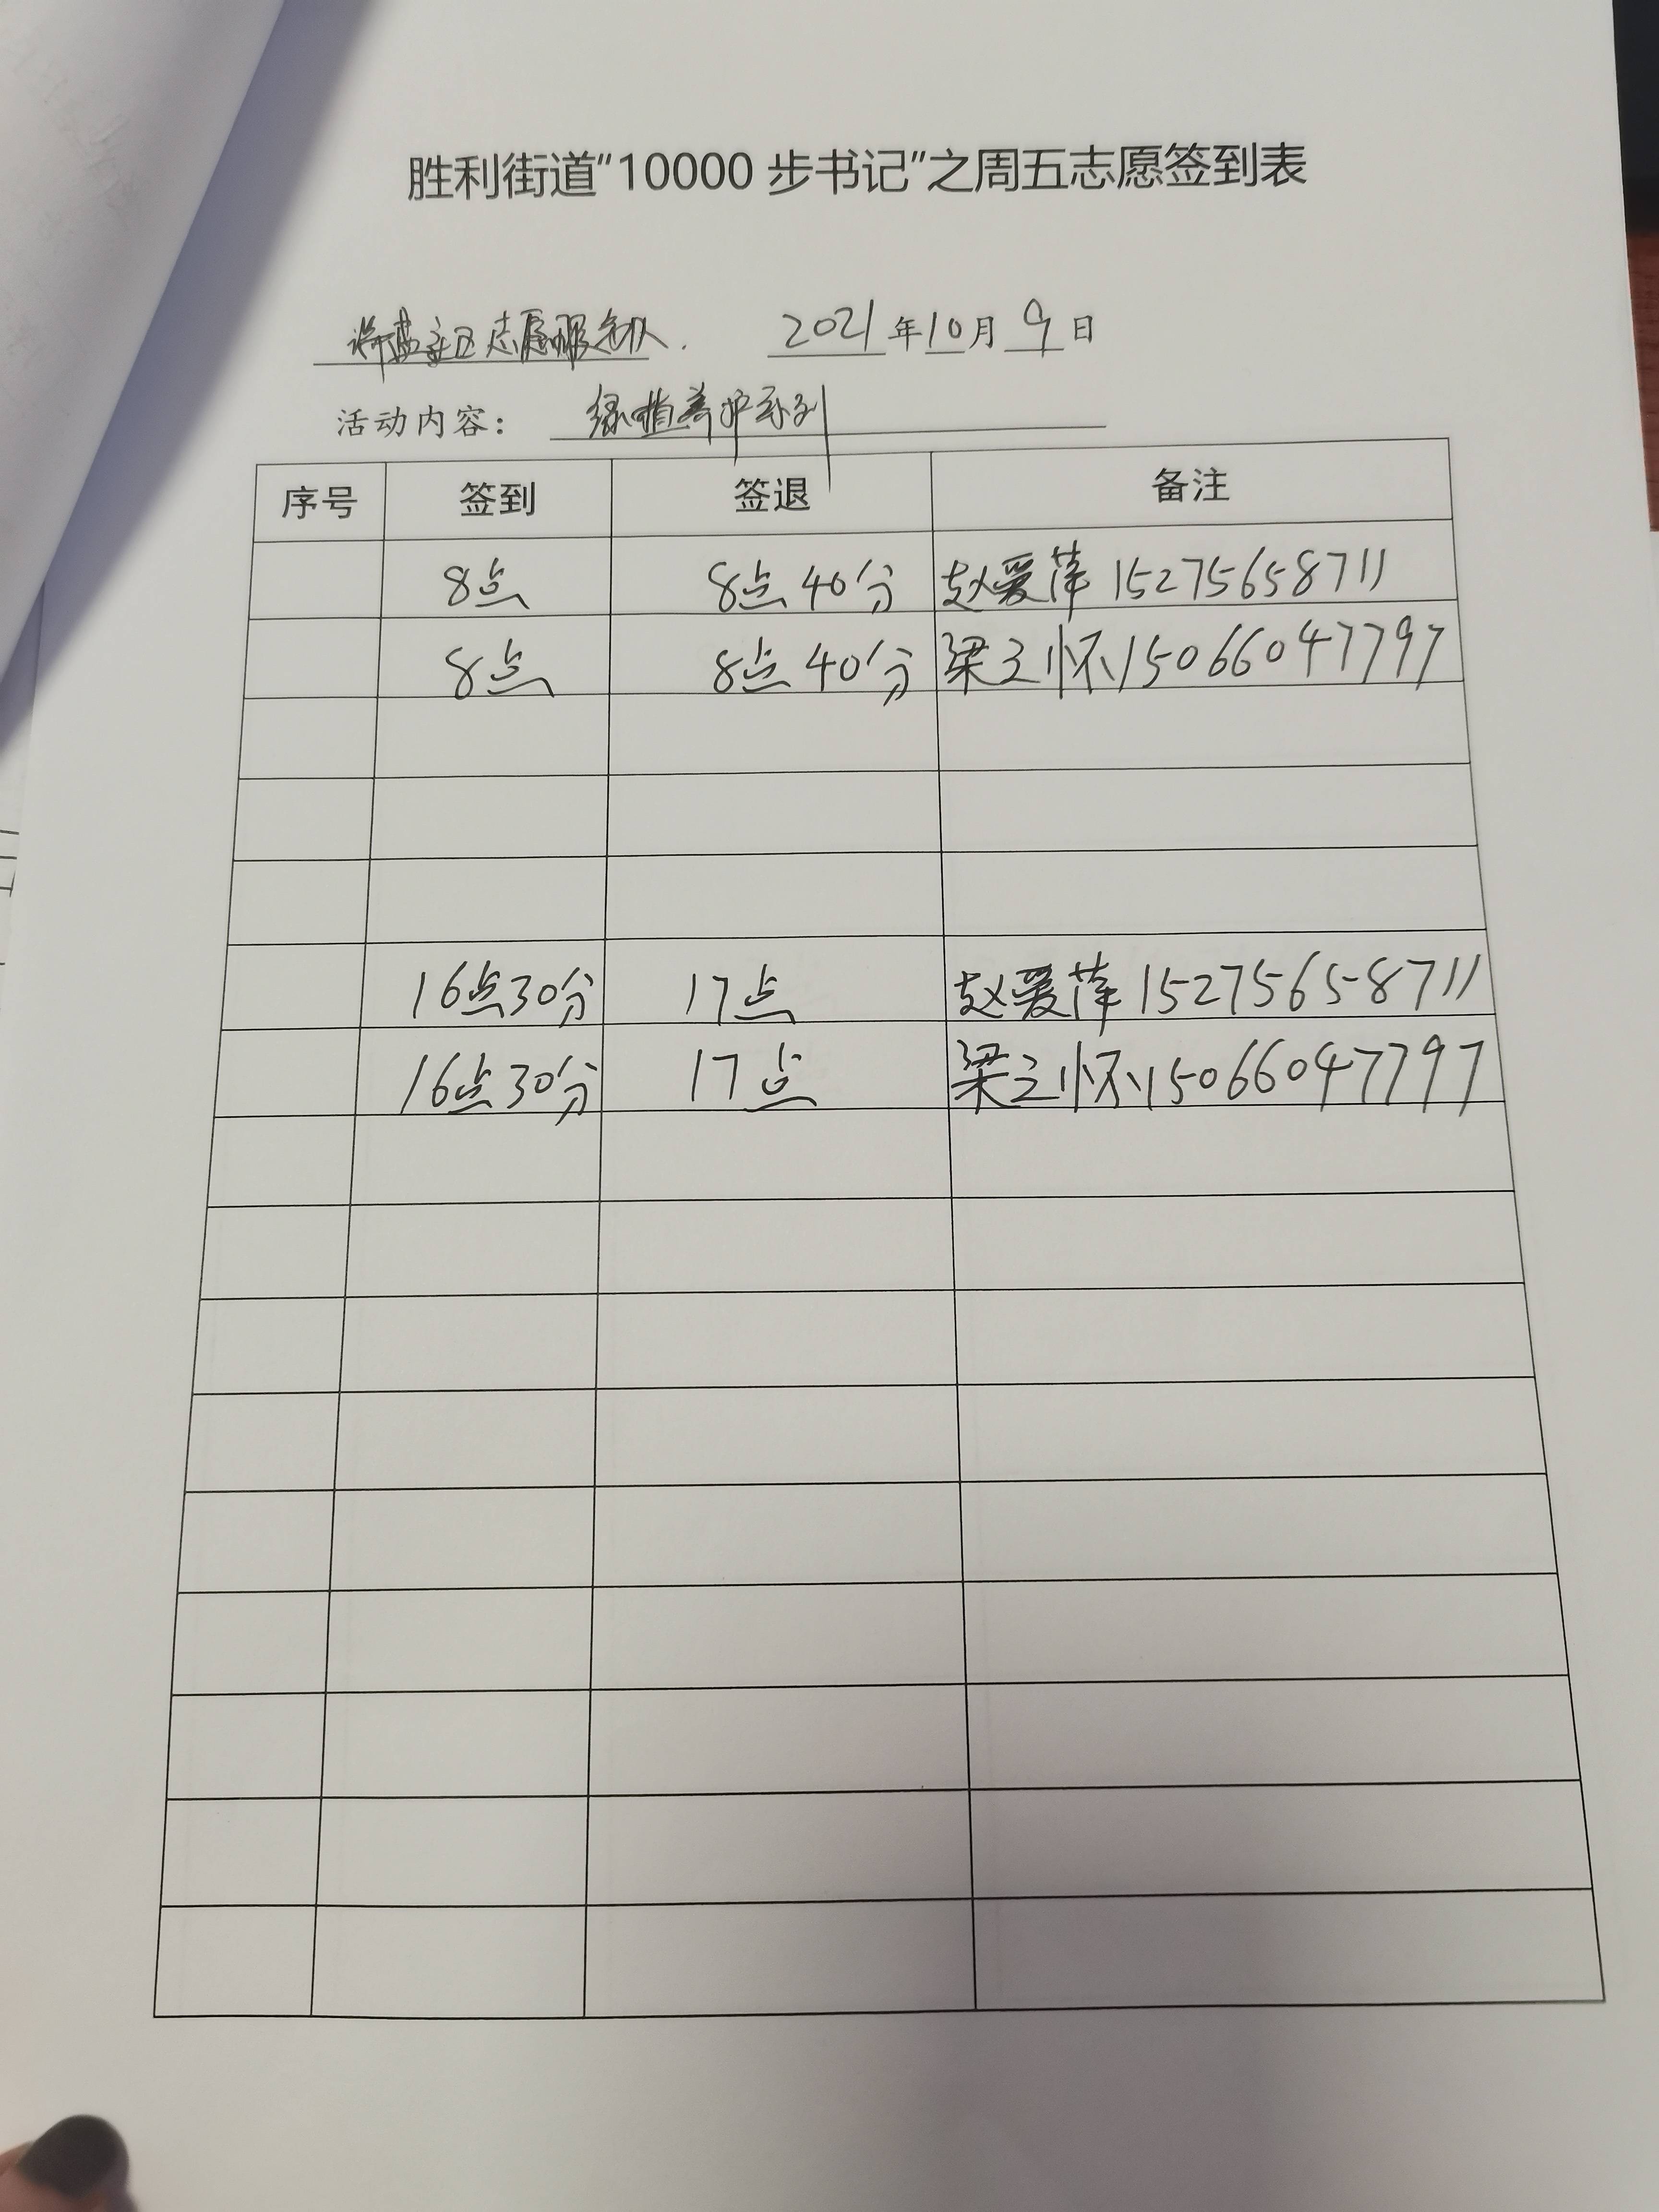 胜利街道“10000 步书记”之周五志愿签到表
社区志愿服务队. 2021 年 10 月 9 日
活动内容: 绿植养护系列
序号 签到 签退 备注
8点 8点40分 赵爱萍 15275658711
8点 8点40分 梁之怀 15066047797
16点30分 17点 赵爱萍 15275658711
16点30分 17点 梁之怀 15066047797